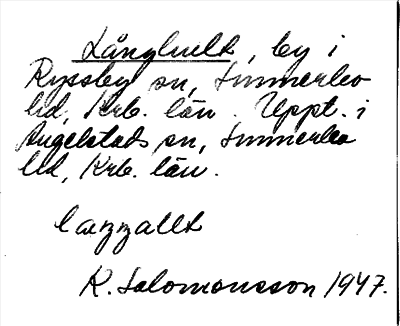 Långhult, by i
Ryssby sn, Sunnerbo
hd, Krb. län. Uppt. i
Angelstads sn, Sunnerbo
hd, Krb. län.
K. Salomonsson 1947.